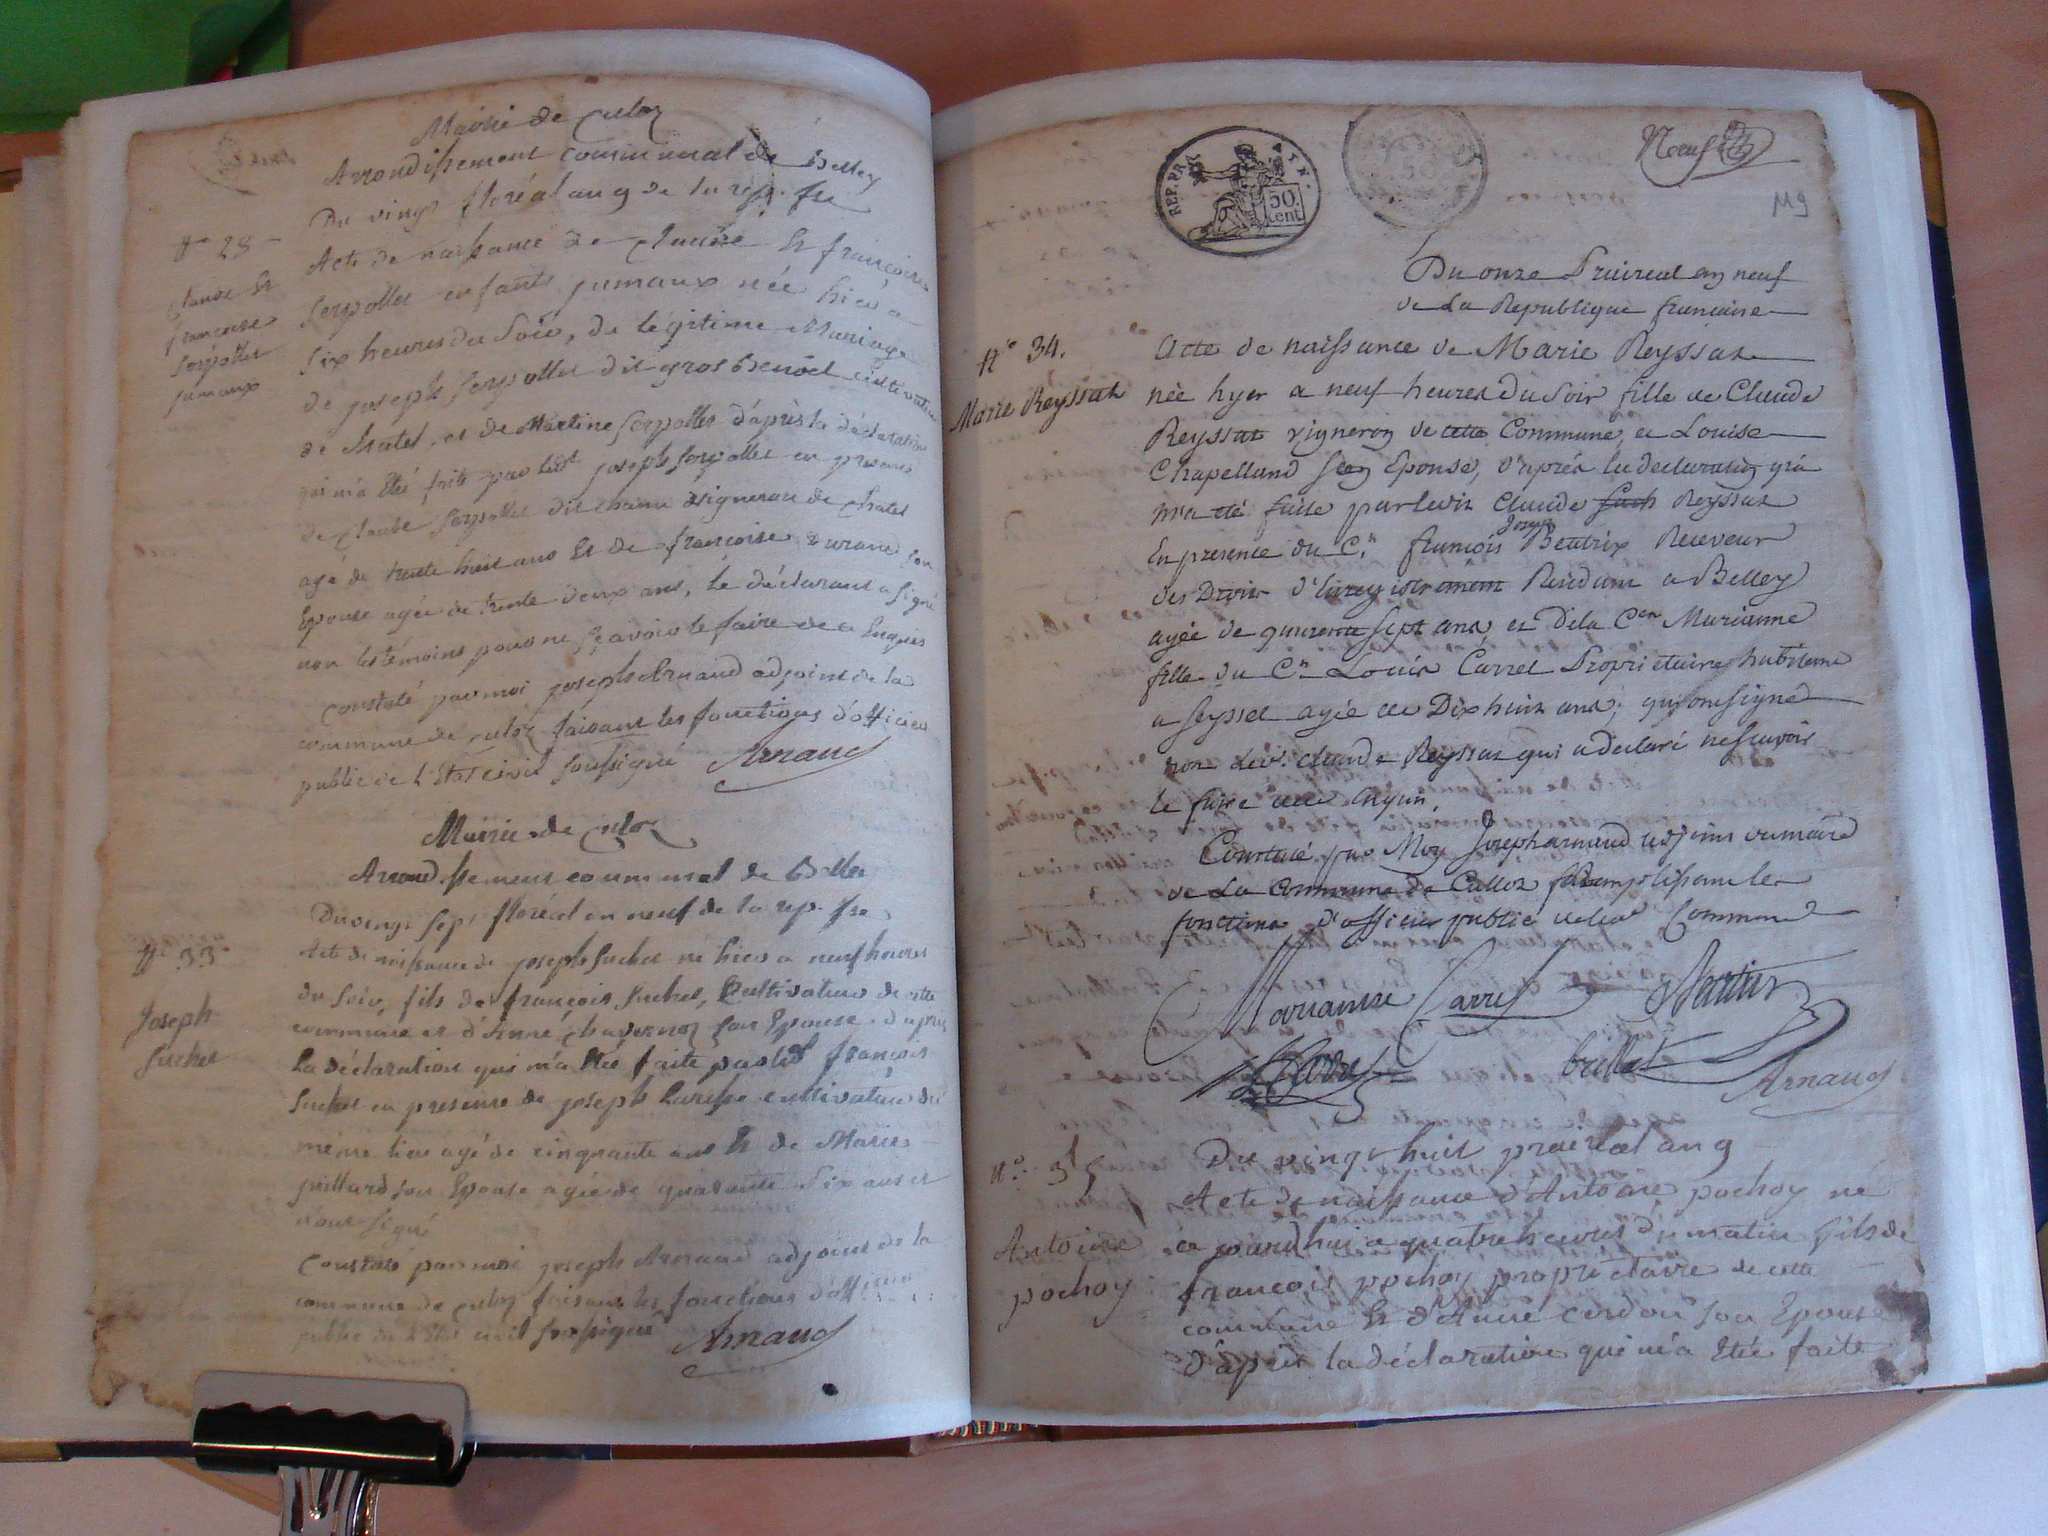 Mairie de Culoz
Arrondissement communal de Belley
Du vingt floréal an 9 de la rep. fse
N° 28
Claude Et
francoise
Serpollet
jumaux
Acte de naissance de Claude Et françoise
Serpollet enfants jumaux née hier a
six heures du Soir, de légitime Mariage
de joseph Serpollet dit gros Benoit cultivateur
de Chatel et de Martine Serpollet d'après la déclaration
qui m'a Eté faite par ledt joseph Serpollet en présence
de Claude Serpollet dit vigneron de Chatel
agé de trente huit ans Et de françoise Durand son
Epouse agée de trente deux ans, le déclarant a signé
non les témoins pour ne sçavoir le faire de ce Enquis
Constaté par moi joseph Arnaud adjoint de la
commune de Culoz faisant les fonctions d'officier
public de l'Etat civil soussigné Arnaud
Mairie de Culoz
Arrondissement communal de Belley
Du vingt sept floréal an neuf de la rep. fse
N° 33
Joseph
Suchet
Acte de naissance de joseph Suchet né hier a neuf heures
du soir, fils de françois Suchet, Cultivateur de cette
commune et d'Anne Chavornoz son Epouse d'après
La déclaration qui m'a Etée faite par ledt françois
Suchet en presence de joseph cultivateur du
même lieu agé de cinquante ans Et de Marie
son Epouse agée de quarante six ans et
n'ont signé
Constaté par moi joseph Arnaud adjoint de la
commune de Culoz faisant les fonctions d'officier
public de l'Etat civil soussigné Arnaud
REP. FRA.
50.
cent
Neuf
119
Du onze Praireal an neuf
de La Republique francaise
N° 34.
Marie Reyssat
Acte de naissance de Marie Reyssat
née hyer a neuf heures Du Soir fille de Claude
Reyssat vigneron de cette Commune, et Louise
Chapelland son Epouse, d'aprés la declaration qui
m'a été faite par ledit Claude Reyssat
En presence du C.n francois Joseph Beatrix Receveur
des Droits d'Enregistrement Residant a Belley
agée de quarente sept ans, et De la C.en Marianne
fille du C.n Louis Carrel Proprietaire habitant
a Seyssel agée de Dix huit ans, qui ont signé
non led.t Claude Reyssat qui a declaré ne scavoir
le faire
Constaté par Moy Joseph arnaud adjoint du maire
de La Commune de Culloz les
fonctions d'officier public de lad. Commune
Marianne Carrel Beatrix
brillat Arnaud
N° 35
Antoine
pochoy
Du vingt huit prairéal an 9
Acte de naissance d'Antoine pochoy né
ce jourd'hui a quatre heures du matin fils de
francois pochoy propriétaire de cette
commune Et d'Anne cordon son Epouse
d'après la déclaration qui m'a Etée faite